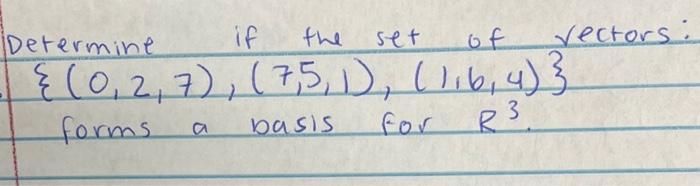 Determine if the set of vectors:
{(0,2,7),(7,5,1),(1,6,4)}
forms a basis for R³.